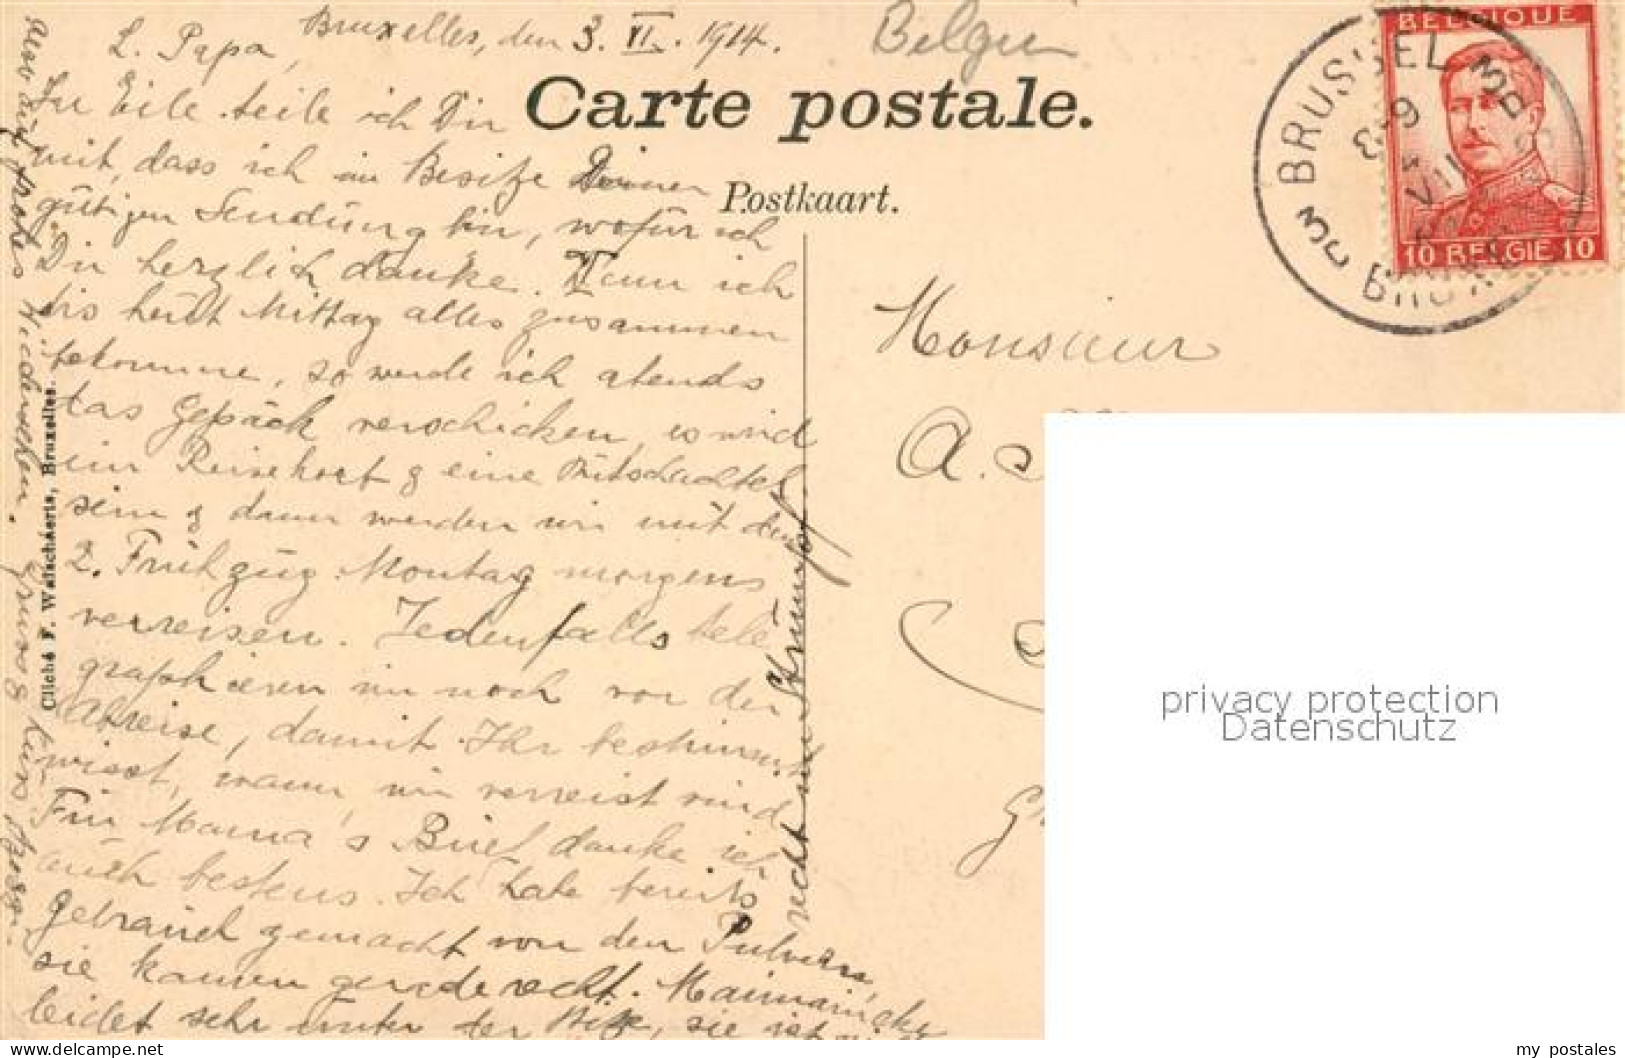 Bruxelles, den 3. VII. 1914.
Belgien
L. Papa,
In Eile teile ich Dir
mit, dass ich im Besitze Deiner
gütigen Sendung bin, wofür ich
Dir herzlich danke. Wenn ich
bis heut Mittag alles zusammen
bekomme, so werde ich abends
das Gepäck verschicken, es wird
ein Reisekorb & eine Hutschachtel
sein & dann werden wir mit dem
2. Frühzug Montag morgens
verreisen. Jedenfalls tele
graphieren wir noch vor der
Abreise, damit Ihr bestimmt
wisst, wann wir verreist sind
Für Mama's Brief danke ich
auch bestens. Ich habe bereits
Gebrauch gemacht von den Pulvern,
sie kamen gerade recht.
leidet sehr unter der Hitze, sie ist
recht im Strumpf
auf frohes Wiedersehen. Gruss & Kuss
Carte postale.
Postkaart.
Cliché F. Walschaerts, Bruxelles.
Monsieur
A. S
BELGIQUE
10 BELGIE 10
3 BRUSSEL 3
BRUXELLES
privacy protection
Datenschutz
my postales